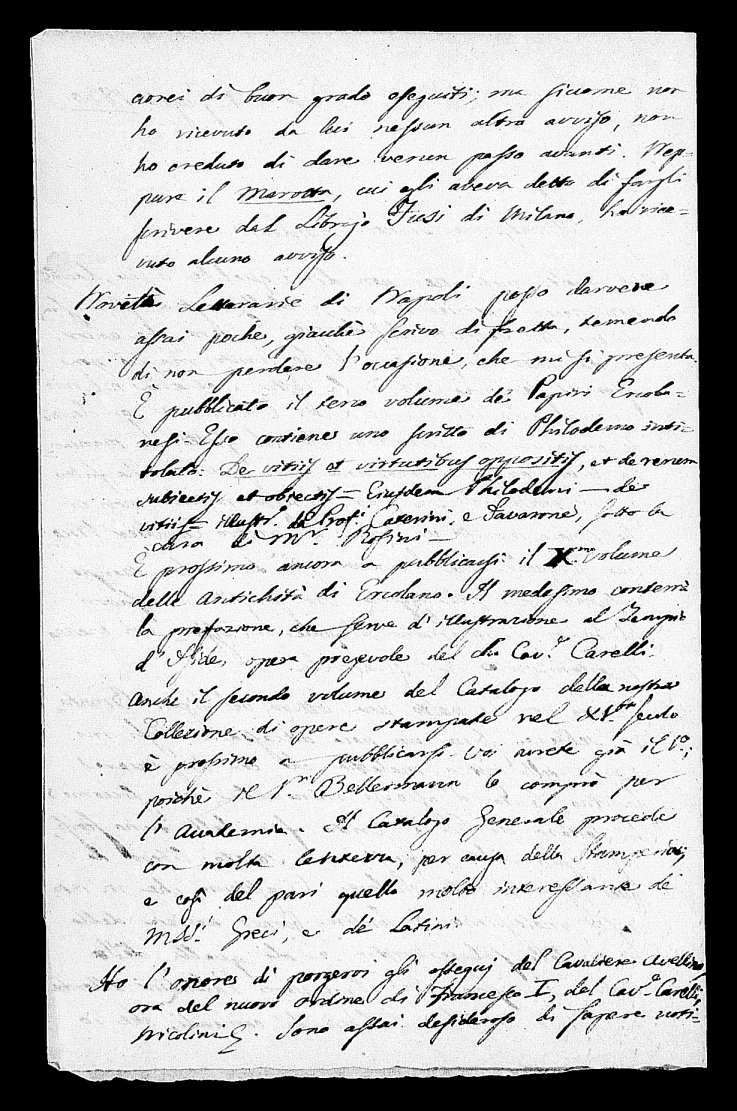 avrei di buon grado eseguiti; ma siccome non
ho ricevuto da lui nessun altro avviso, non
ho creduto di dare verun passo avanti. Nep-
pure il Marotta, cui egli aveva detto di fargli
scrivere dal Librajo Fusi di Milano, ha rice-
vuto alcuno avviso.
Novità Letterarie di Napoli posso darvene
assai poche, giacchè scrivo di fretta, temendo
di non perdere l'occasione, che mi si presenta.
È pubblicato il terzo volume de' Papiri Ercola-
nesi. Esso contiene uno scritto di Philodemo inti-
tolato: De vitiis et virtutibus oppositis, et de rerum
subiectis et obiectis = Eiusdem Philodemi — de
vitiis = illustr. da Prof.i Caterini, e Javarone, sotto la
cura di Mr. Rosini —
È prossimo ancora a pubblicarsi il X.mo Volume
delle Antichità di Ercolano. Il medesimo conterrà
la prefazione, che serve d'illustrazione al Tempio
d'Iside, opera pregevole del du Cav.r Carelli.
Anche il secondo volume del Catalogo della nostra
Collezione di opere stampate nel XV.to secolo
è prossimo a pubblicarsi. Voi avrete già il 1.o;
poichè il Sr. Bellermann lo comprò per
l'Accademia. Il Catalogo Generale procede
con molta lentezza, per causa della Stamperia;
e così del pari quello molto interessante de'
MSS.i Greci, e de' Latini.
Ho l'onore di porgervi gli ossequj del Cavaliere Avellino,
ora del nuovo ordine di Francesco I, del Cav.e Carelli,
Nicolini &. Sono assai desideroso di sapere noti-